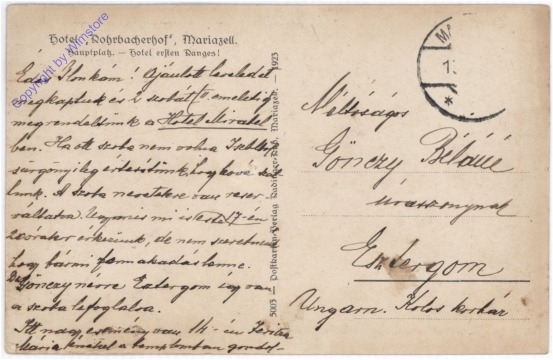 Hotel „Rohrbacherhof", Mariazell.
Hauptplatz. — Hotel ersten Ranges!
Copyright by Wimstore
Édes Ilonkám! Ajánlott leveledet
megkaptuk és 2 szobát
megrendeltünk a Hotel
ben. Ha ott szoba nem volna
sürgönyileg értesítünk, hogy hová
lünk. A szoba nevetekre van reser
válva. Ugyanis mi is este 17-én
érkezünk, de nem szeretném
hogy bármi fennakadás lenne.
Gönczy névre Esztergom így van
a szoba lefoglalva.
Itt nagy esemény van 14-én
Mária énekel a templomban gondol-
5003 — Postkarten-Verlag Radinger, Mariazell. — 1923
M
1
Méltóságos
Gönczy Béláné
úrasszonynak
Esztergom
Ungarn. Kolos kórház